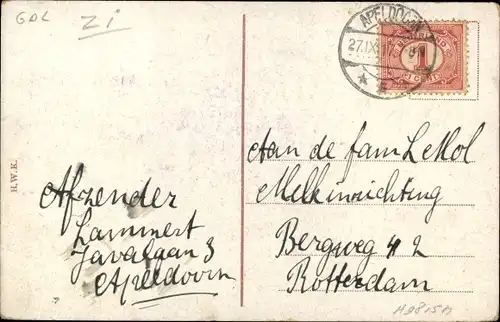 GDL
21
APELDOORN
27.IX
NEDERLAND
1
CENT
H.W.K.
Aan de fam L Mol
Melkinrichting
Bergweg 42
Rotterdam
Afzender
Lammert
Javalaan 3
Apeldoorn